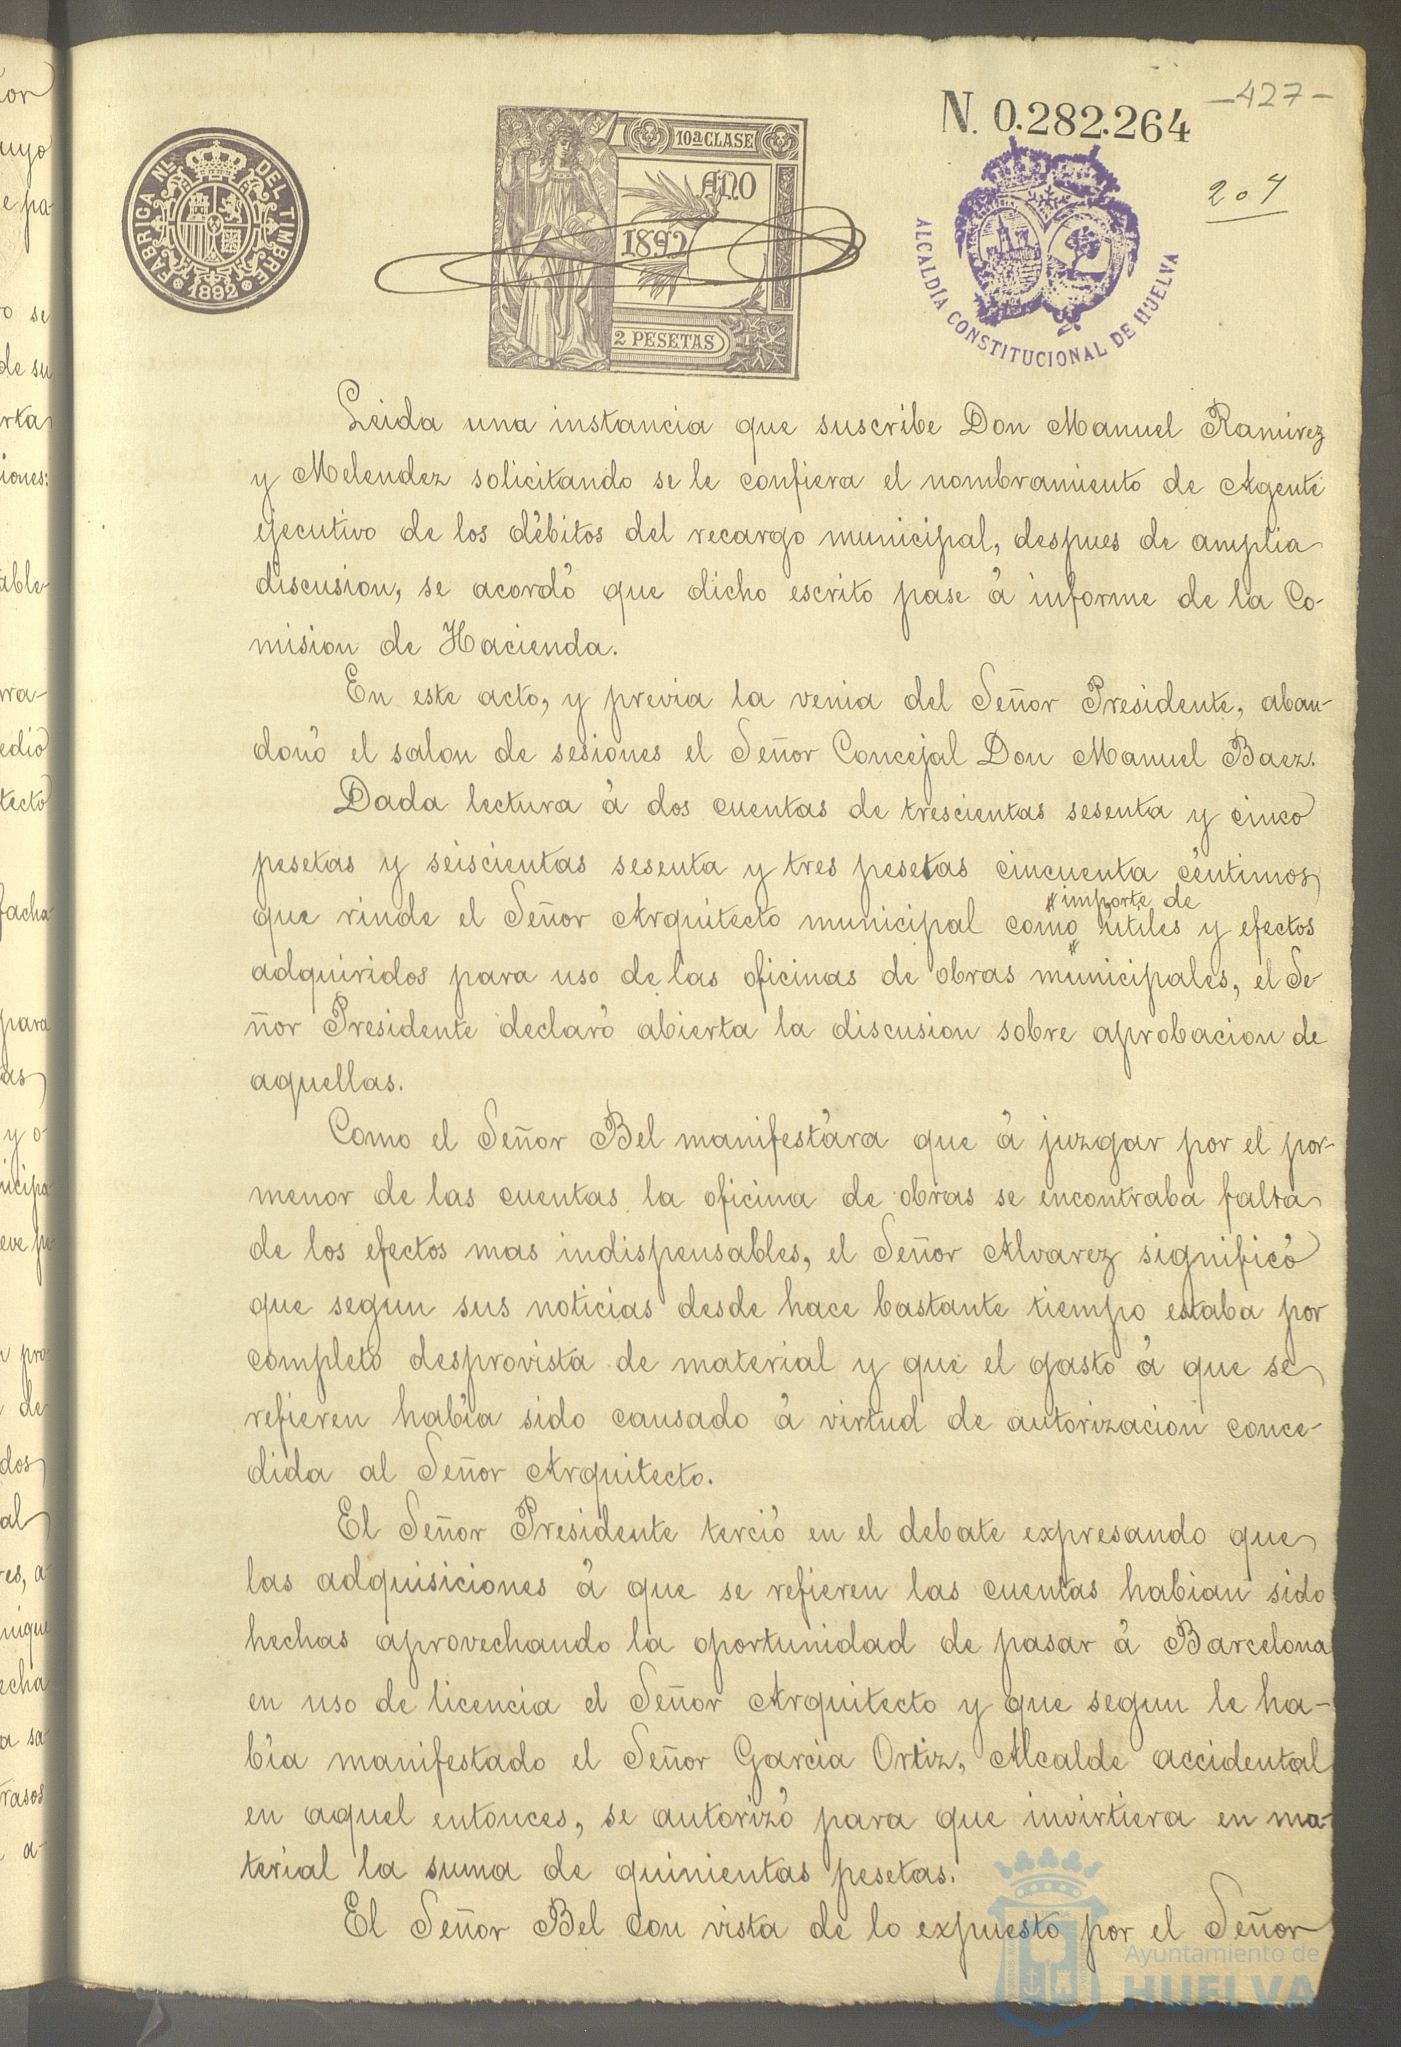 N. 0.282.264
-427-
204
FABRICA NL. DEL TIMBRE
1892
10ª CLASE
AÑO
1892
2 PESETAS
ALCALDÍA CONSTITUCIONAL DE HUELVA
Leida una instancia que suscribe Don Manuel Ramirez
y Melendez solicitando se le confiera el nombramiento de Agente
ejecutivo de los débitos del recargo municipal, despues de amplia
discusion, se acordó que dicho escrito pase á informe de la Co-
mision de Hacienda.
En este acto, y previa la venia del Señor Presidente, aban-
donó el salon de sesiones el Señor Concejal Don Manuel Baez.
Dada lectura á dos cuentas de trescientas sesenta y cinco
pesetas y seiscientas sesenta y tres pesetas cincuenta céntimos
importe de
que rinde el Señor Arquitecto municipal como útiles y efectos
adquiridos para uso de las oficinas de obras municipales, el Se-
ñor Presidente declaró abierta la discusion sobre aprobacion de
aquellas.
Como el Señor Bel manifestára que á juzgar por el por-
menor de las cuentas la oficina de obras se encontraba falta
de los efectos mas indispensables, el Señor Alvarez significó
que segun sus noticias desde hace bastante tiempo estaba por
completo desprovista de material y que el gasto á que se
refieren había sido causado á virtud de autorizacion conce-
dida al Señor Arquitecto.
El Señor Presidente terció en el debate expresando que
las adquisiciones á que se refieren las cuentas habian sido
hechas aprovechando la oportunidad de pasar á Barcelona
en uso de licencia el Señor Arquitecto y que segun le ha-
bía manifestado el Señor García Ortiz, Alcalde accidental
en aquel entonces, se autorizó para que invirtiera en ma-
terial la suma de quinientas pesetas.
El Señor Bel con vista de lo expuesto por el Señor
Ayuntamiento de
HUELVA